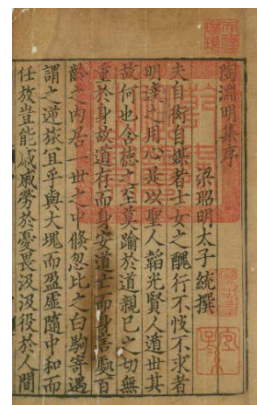 陶淵明集序
梁昭明太子統撰
夫自衒自媒者士女之醜行不忮不求者
明達之用心是以聖人韜光賢人遁世其
故何也含德之至莫踰於道親己之切無
重於身故道存而身安道亡而身害處百
齡之內居一世之中倏忽比之白駒寄遇
謂之逆旅宜乎與大塊而盈虛隨中和而
任放豈能戚戚勞於憂畏汲汲役於人間